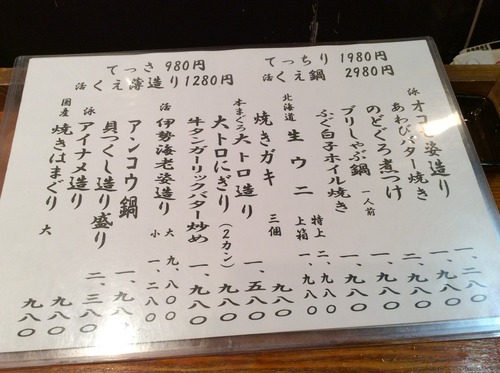 てっさ 980円
活 くえ薄造り1280円
てっちり 1980円
活 くえ鍋 2980円
泳 姿造り
あわびバター焼き
のどぐろ煮つけ
ブリしゃぶ鍋 一人前
ふぐ白子ホイル焼き
北海道 生ウニ 特上 上箱
焼きガキ 三個 九八〇
本まぐろ大トロ造り 一、五八〇
大トロにぎり(2カン) 九八〇
牛タンガーリックバター炒め 一、九八〇
活 伊勢海老姿造り 大 九、八〇〇 小 一、二八〇
アンコウ鍋 一、九八〇
貝つくし造り盛り 二、三八〇
泳 アイナメ造り 九八〇
国産 焼きはまぐり 大 九八〇